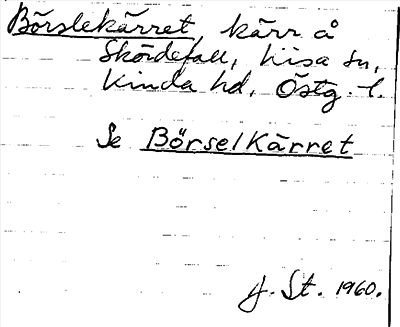 Börslekärret, kärr å
Skördefall, Kisa sn,
Kinda hd, Östg. l.
Se Börselkärret
J. St. 1960.